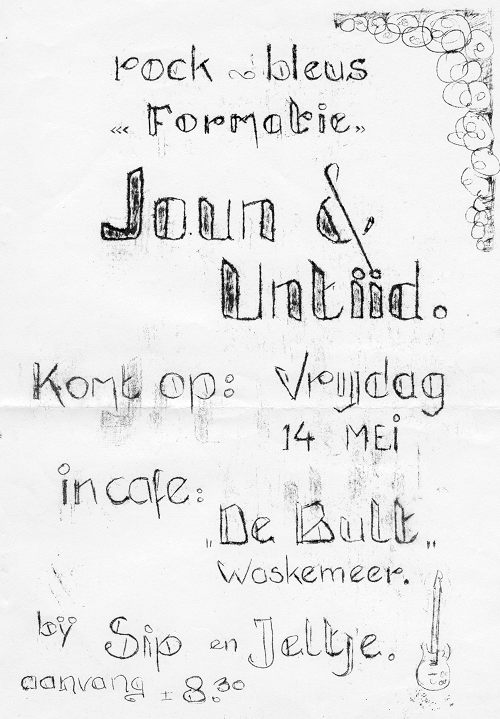 rock ∾ bleus
«« Formatie »
Joun &
Untiid.
Komt op: Vrijdag
14 MEi
in cafe:
„De Bult„
Waskemeer.
bij Sip en Jeltje.
aanvang ± 8.30